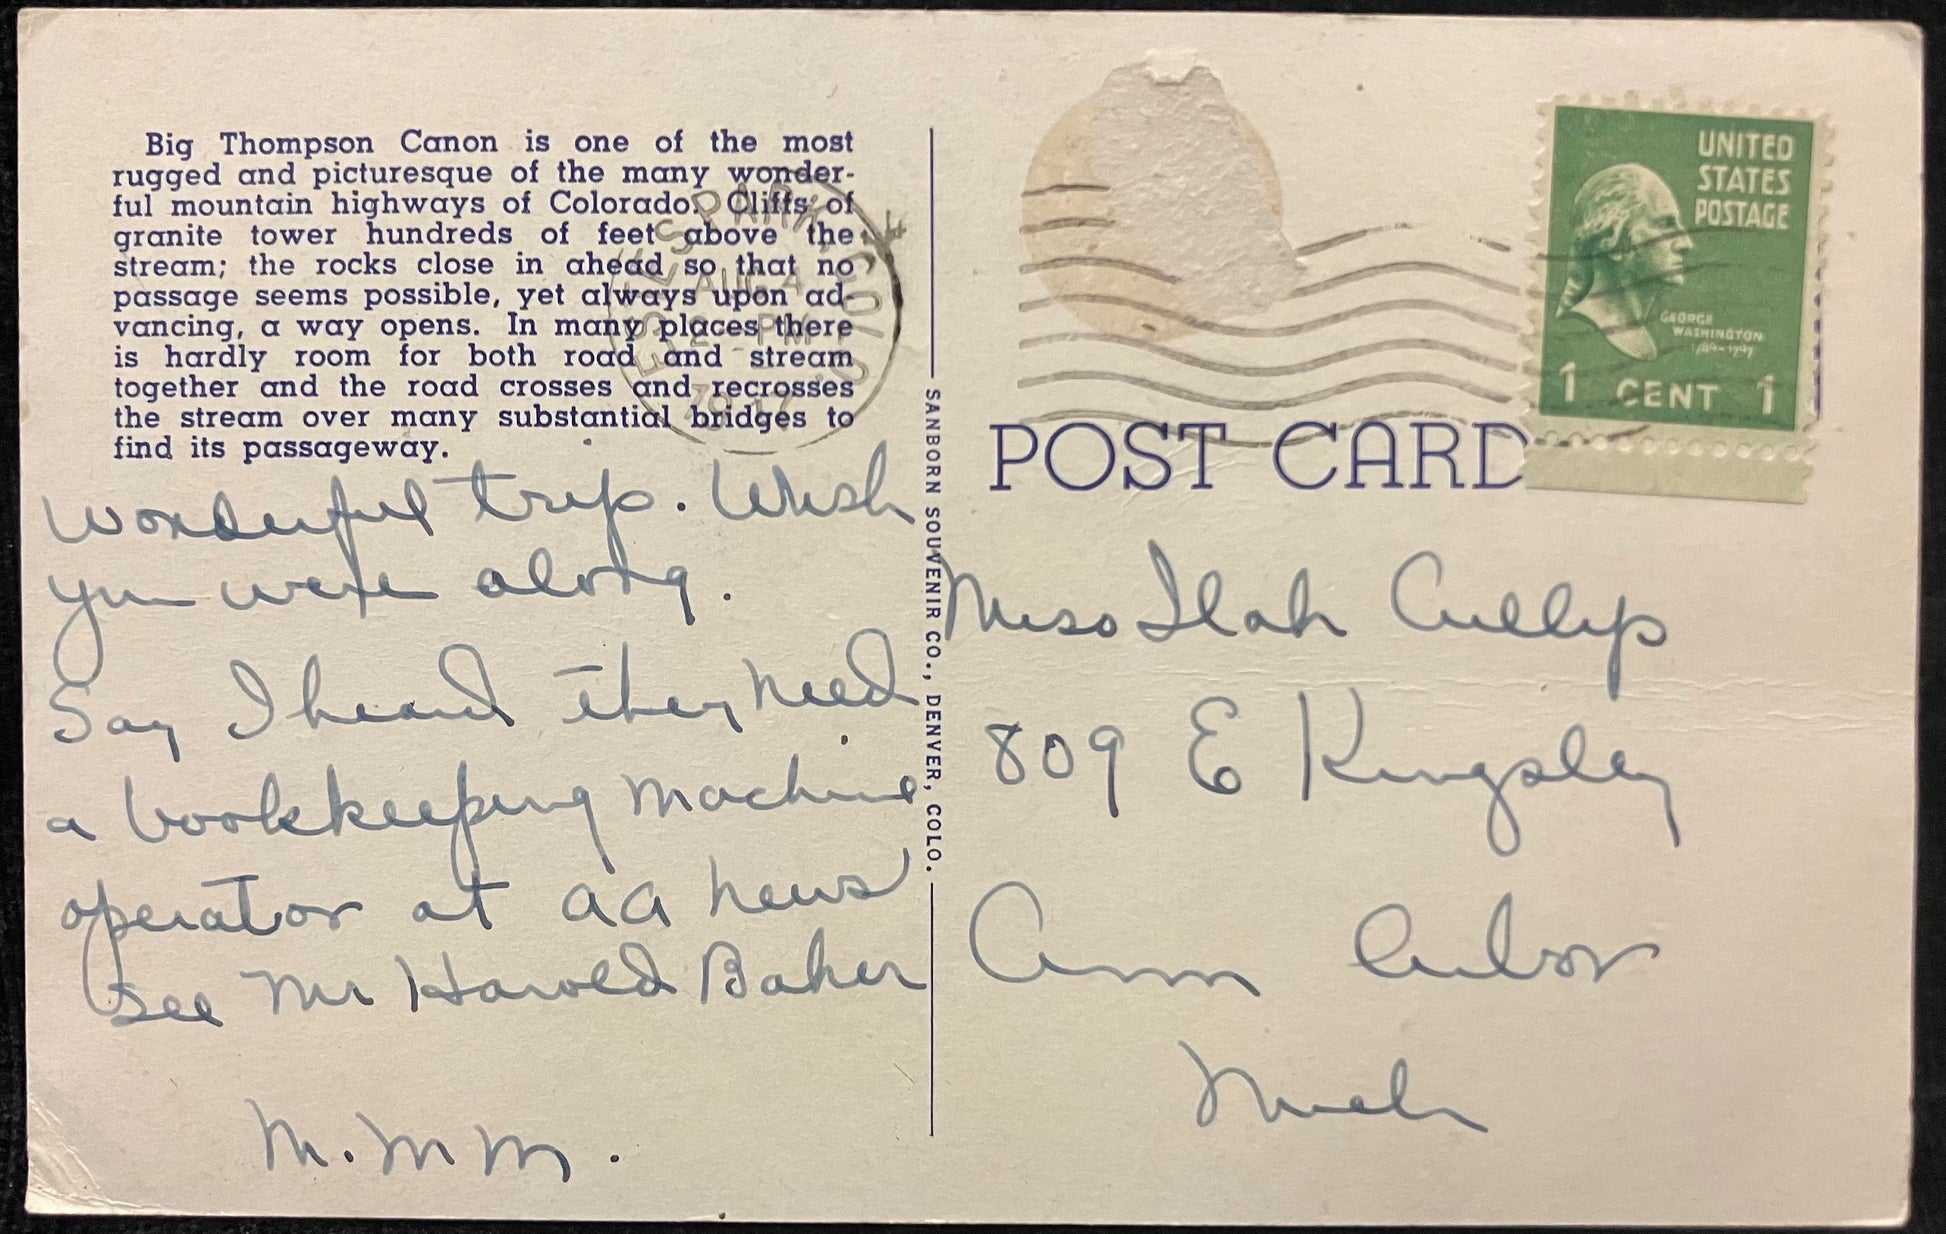 Big Thompson Canon is one of the most
rugged and picturesque of the many wonder-
ful mountain highways of Colorado. Cliffs of
granite tower hundreds of feet above the
stream; the rocks close in ahead so that no
passage seems possible, yet always upon ad-
vancing, a way opens. In many places there
is hardly room for both road and stream
together and the road crosses and recrosses
the stream over many substantial bridges to
find its passageway.
ESTES PARK, COLO
AUG 4
2 PM
Wonderful trip. Wish
you were along.
Say I heard they need
a bookkeeping machine
operator at AA News
See Mr Harold Baker
M. M M.
SANBORN SOUVENIR CO., DENVER, COLO.
UNITED
STATES
POSTAGE
GEORGE
WASHINGTON
1789-1797
1 CENT 1
POST CARD
Miss Ilah Cullip
809 E Kingsley
Ann Arbor
Mich